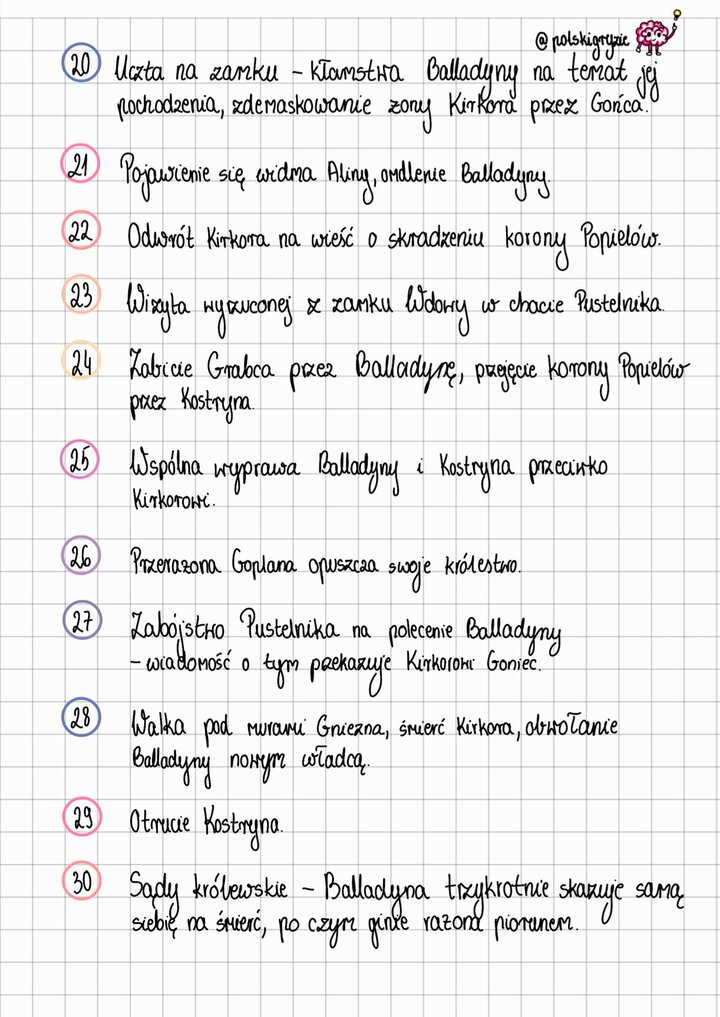 @polskigryzie
20 Uczta na zamku – kłamstwa Balladyny na temat jej
pochodzenia, zdemaskowanie żony Kirkora przez Gońca.
21 Pojawienie się widma Aliny, omdlenie Balladyny.
22 Odwrót Kirkora na wieść o skradzeniu korony Popielów.
23 Wizyta wyrzuconej z zamku Wdowy w chacie Pustelnika.
24 Zabicie Grabca przez Balladynę, przejęcie korony Popielów
przez Kostryna.
25 Wspólna wyprawa Balladyny i Kostryna przeciwko
Kirkorowi.
26 Przerażona Goplana opuszcza swoje królestwo.
27 Zabójstwo Pustelnika na polecenie Balladyny
– wiadomość o tym przekazuje Kirkorowi Goniec.
28 Walka pod murami Gniezna, śmierć Kirkora, obwołanie
Balladyny nowym władcą.
29 Otrucie Kostryna.
30 Sądy królewskie – Balladyna trzykrotnie skazuje samą
siebie na śmierć, po czym ginie rażona piorunem.